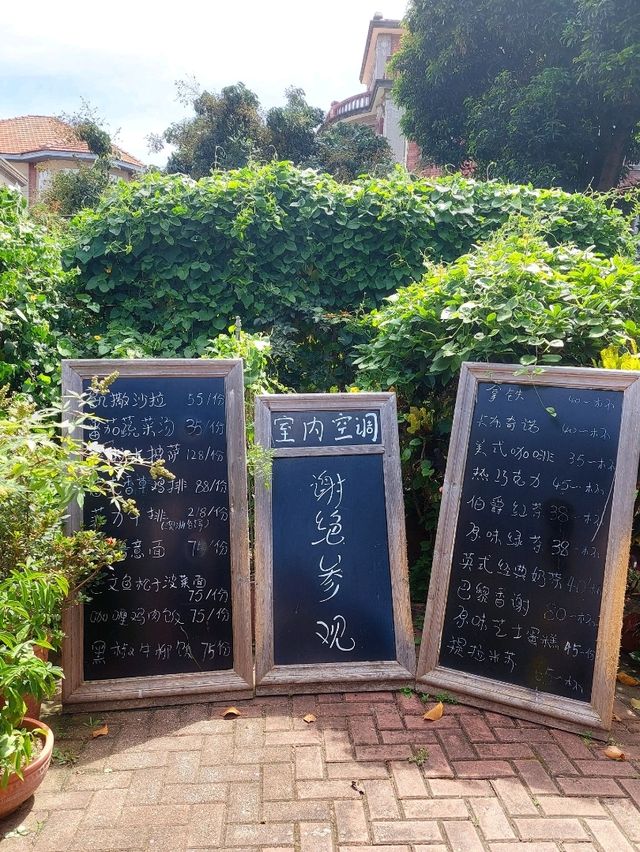 凯撒沙拉 55/份
番茄蔬菜汤 35/份
披萨 128/份
香草鸡排 88/份
菲力牛排 218/份
意面 75/份
文鱼松子菠菜面
75/份
咖喱鸡肉饭 75/份
黑椒牛柳饭 75/份
室内空调
谢绝参观
拿铁 40一杯
卡布奇诺 40一杯
美式咖啡 35一杯
热巧克力 45一杯
伯爵红茶 38一杯
原味绿茶 38一杯
英式经典奶茶 40
巴黎香榭 80一杯
原味芝士蛋糕 45一份
提拉米苏